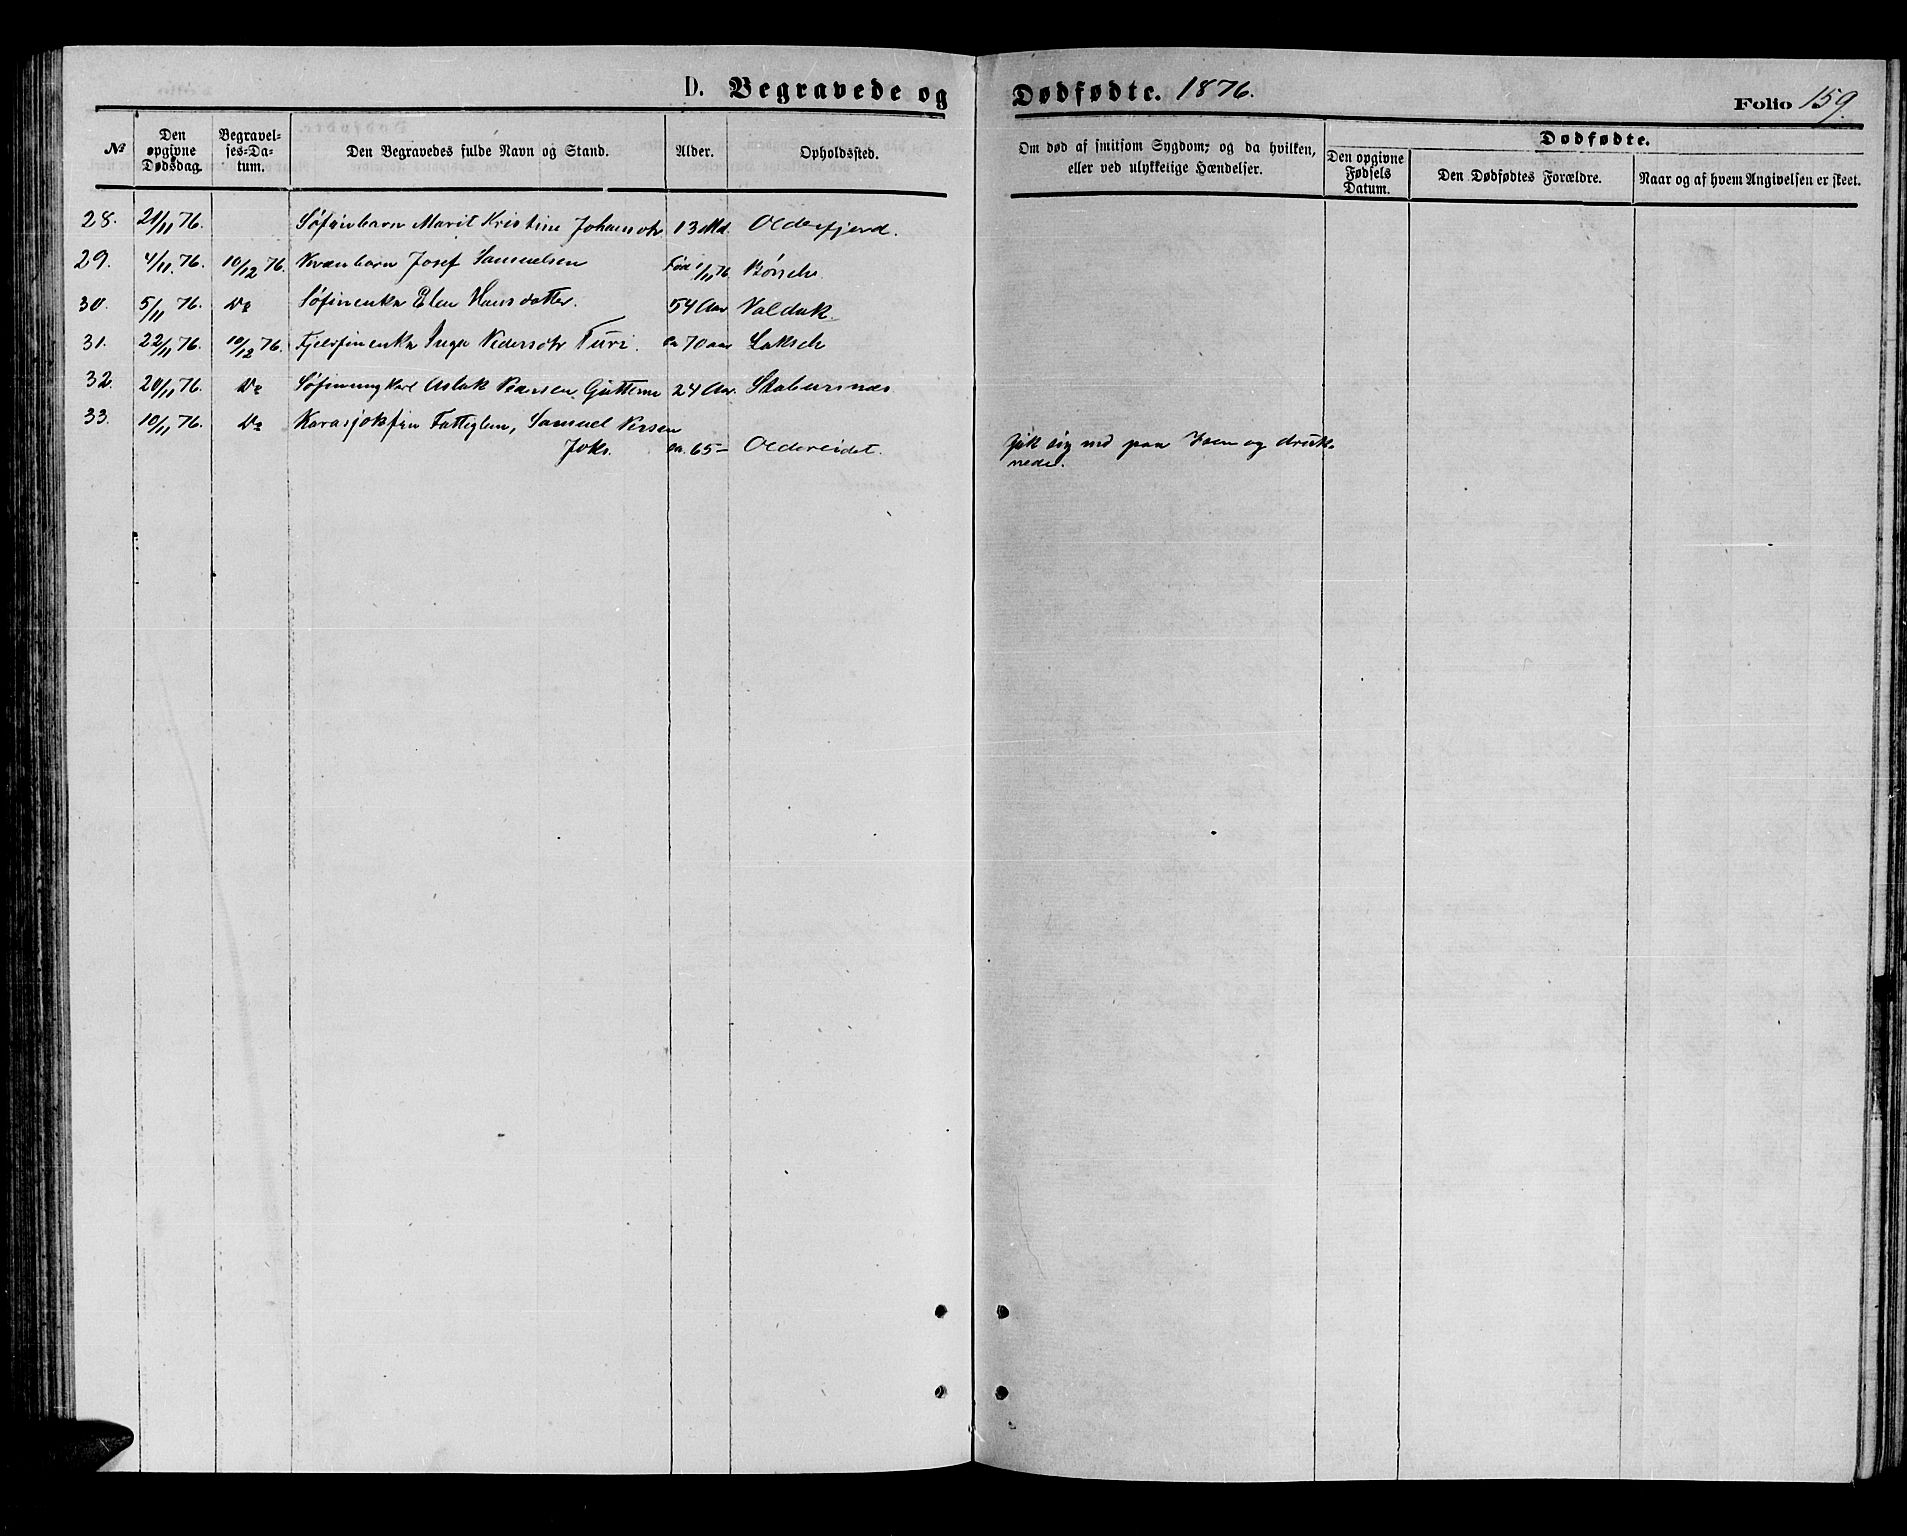 D. Begravede og Dødfødte. 1876.
Folio 159.
№
Den opgivne Dødsdag.
Begravelses-Datum.
Den Begravedes fulde Navn og Stand.
Alder.
Opholdssted.
Om død af smitsom Sygdom; og da hvilken, eller ved ulykkelige Hændelser.
Dødfødte.
Den opgivne Fødsels Datum.
Den Dødfødtes Forældre.
Naar og af hvem Angivelsen er skeet.
28. 21/11 76. Søfinbarn Marit Kristine Johansdtr 13 Md. Olderfjord.
29. 4/11 76. 10/12 76. Kvænbarn Josef Samuelsen Død 1/11 76. Børselv.
30. 5/11 76. Do Søfinenke Elen Hansdatter. 54 Aar Valdak.
31. 22/11 76. 10/12 76. Fjeldfinenke Inga Pedersdtr Turi. ca 70 aar Lakselv
32. 20/11 76. Do Søfinungkarl Aslak Pedersen Guttorm 24 Aar. Stabursnæs
33. 10/11 76. Do Karasjokfin Fattiglem, Samuel Persen
Joks. ca. 65 – Oldereidet. gik sig ned paa Isen og druk-
nede.